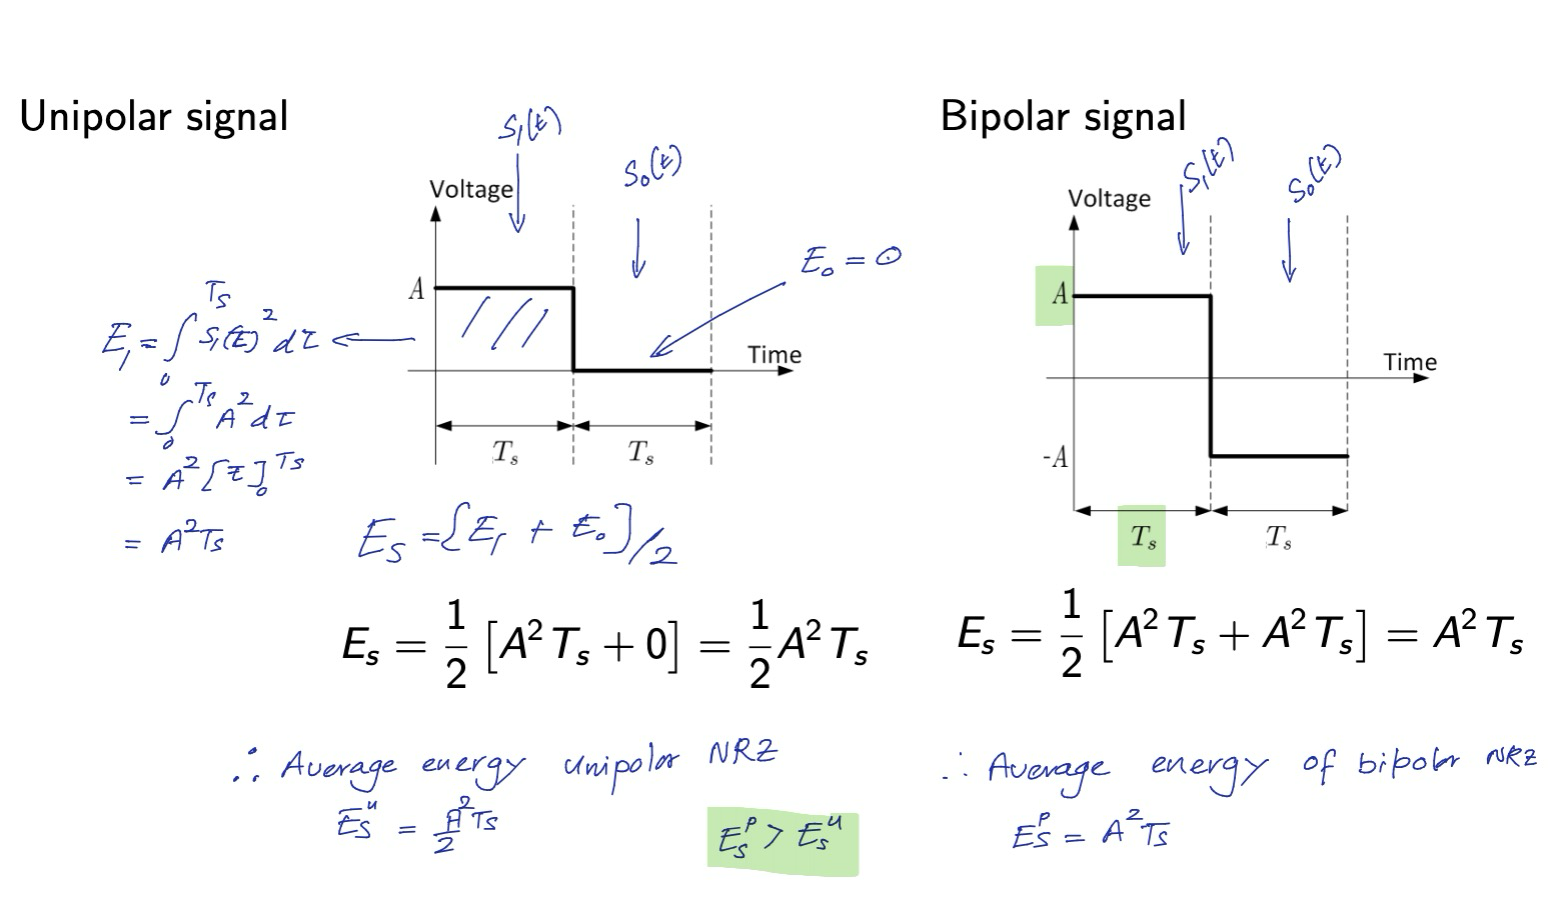 Unipolar signal
S₁(t)
S₀(t)
Voltage
A
E₀ = 0
Time
E₁ = ∫₀^Ts S₁(t)² dτ
= ∫₀^Ts A² dτ
= A² [τ]₀^Ts
= A²Ts
T_s
T_s
E_s = [E₁ + E₀]/2
E_s = 1/2 [A² T_s + 0] = 1/2 A² T_s
∴ Average energy unipolar NRZ
E_s^u = A²/2 Ts
E_s^p > E_s^u
Bipolar signal
S₁(t)
S₀(t)
Voltage
A
Time
-A
T_s
T_s
E_s = 1/2 [A² T_s + A² T_s] = A² T_s
∴ Average energy of bipolar NRZ
E_s^p = A²Ts